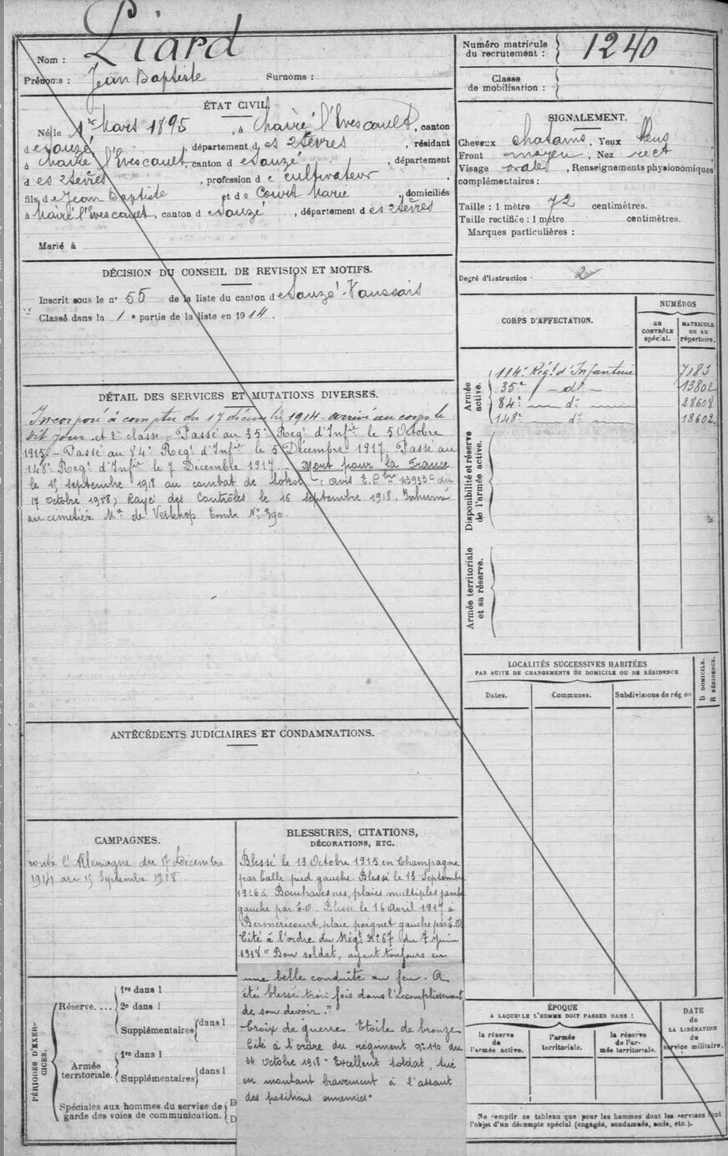 Nom : Liard
Prénoms : Jean Baptiste Surnoms :
Numéro matricule du recrutement : 1240
Classe de mobilisation :
ÉTAT CIVIL.
Né le 1er Mars 1895, à Mairé l'Evescault, canton
de Sauzé, département des 2 Sèvres, résidant
à Mairé l'Evescault, canton de Sauzé, département
des 2 Sèvres, profession de cultivateur
fils de Jean Baptiste et de Marie, domiciliés
à Mairé l'Evescault, canton de Sauzé, département des 2 Sèvres
Marié à
SIGNALEMENT.
Cheveux chatains, Yeux bleus
Front moyen, Nez rect
Visage ovale, Renseignements physionomiques
complémentaires :
Taille : 1 mètre 72 centimètres.
Taille rectifiée : 1 mètre centimètres.
Marques particulières :
Degré d'instruction : 2
DÉCISION DU CONSEIL DE REVISION ET MOTIFS.
Inscrit sous le n° 55 de la liste du canton de Sauzé-Vaussais
Classé dans la 1e partie de la liste en 1914.
CORPS D'AFFECTATION.
NUMÉROS
AU CONTRÔLE spécial.
MATRICULE OU AU répertoire.
Armée active.
114e Régt d'Infanterie 7183
35e do 13802
84e do 28608
148e do 18602
Disponibilité et réserve de l'armée active.
Armée territoriale et sa réserve.
DÉTAIL DES SERVICES ET MUTATIONS DIVERSES.
Incorporé à compter du 17 décembre 1914 arrivé au corps le
dit jour et 2e classe. Passé au 35e Régt d'Infie le 5 Octobre
1915. Passé au 84e Régt d'Infie le 5 Décembre 1917. Passé au
148e Régt d'Infie le 7 Décembre 1917. Mort pour la France
le 15 septembre 1918 au combat de Sokol : avis du
17 octobre 1918, Rayé des Contrôles le 16 septembre 1918. Inhumé
au cimetière Mre de Verkhop Tombe N° 390
LOCALITÉS SUCCESSIVES HABITÉES
PAR SUITE DE CHANGEMENTS DE DOMICILE OU DE RÉSIDENCE
Dates. Communes. Subdivisions de rég on
D DOMICILE.
R RÉSIDENCE.
ANTÉCÉDENTS JUDICIAIRES ET CONDAMNATIONS.
CAMPAGNES.
contre l'Allemagne du 17 Décembre
1914 au 15 Septembre 1918
BLESSURES, CITATIONS,
DÉCORATIONS, ETC.
Blessé le 13 Octobre 1915 en Champagne
par balle pied gauche. Blessé le 13 Septembre
1916 à Bouchavesnes, plaies multiples jambe
gauche par E.O. Blessé le 16 Avril 1917 à
Berméricourt, plaie poignet gauche par E.O
Cité à l'ordre du Régt N° 67 du 7 Juin
1918 " Bon soldat, ayant toujours eu
une belle conduite au feu. A
été blessé trois fois dans l'accomplissement
de son devoir."
Croix de guerre Etoile de bronze
Cité à l'ordre du régiment n° 110 du
Octobre 1918 " Excellent soldat, tué
en montant bravement à l'assaut
des positions ennemies"
PÉRIODES D'EXERCICES.
Réserve....
1re dans l
2e dans l
Supplémentaires dans l
Armée territoriale.
1re dans l
Supplémentaires dans l
Spéciales aux hommes du service de
garde des voies de communication.
ÉPOQUE
A LAQUELLE L'HOMME DOIT PASSER DANS :
la réserve de l'armée active.
l'armée territoriale.
la réserve de l'armée territoriale.
DATE
de
LA LIBÉRATION
du
service militaire.
Ne remplir ce tableau que pour les hommes dont les services font
l'objet d'un décompte spécial (engagés, condamnés, omis, etc.).